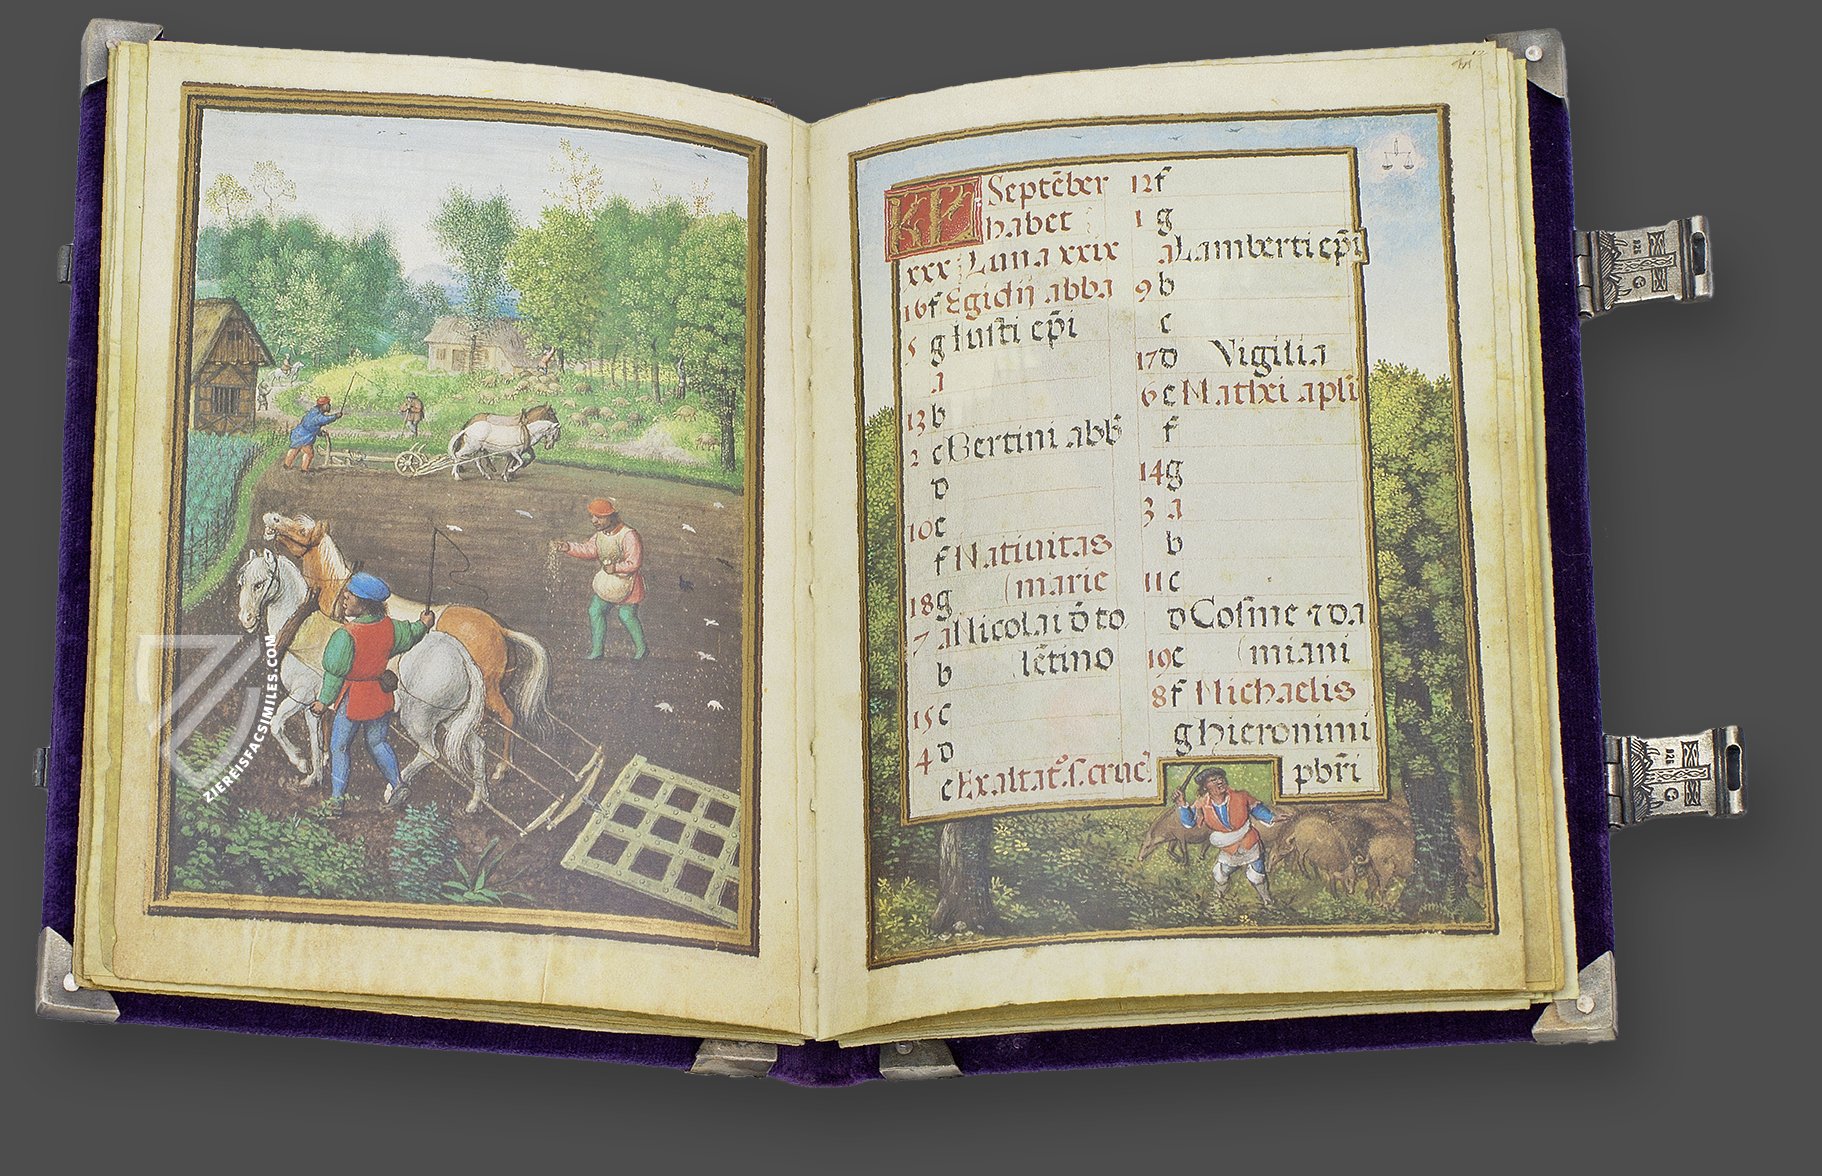 KL Septēber
habet
xxx Luna xxix
16 f Egidij abba
5 g Iusti ep̄i
a
13 b
2 c Bertini abb̄
d
10 e
f Natiuitas
18 g (marie
7 a Nicolai d̄ to
b lētino
15 c
4 d
e Exaltat° s. cruc̄
12 f
1 g
a Lamberti ep̄i
9 b
c
17 d Vigilia
6 e Mathei apl̄i
f
14 g
3 a
b
11 c
d Cosme ⁊ da
19 e (miani
8 f Michaelis
g hieronimi
pb̄ri
ZIEREISFACSIMILES.COM